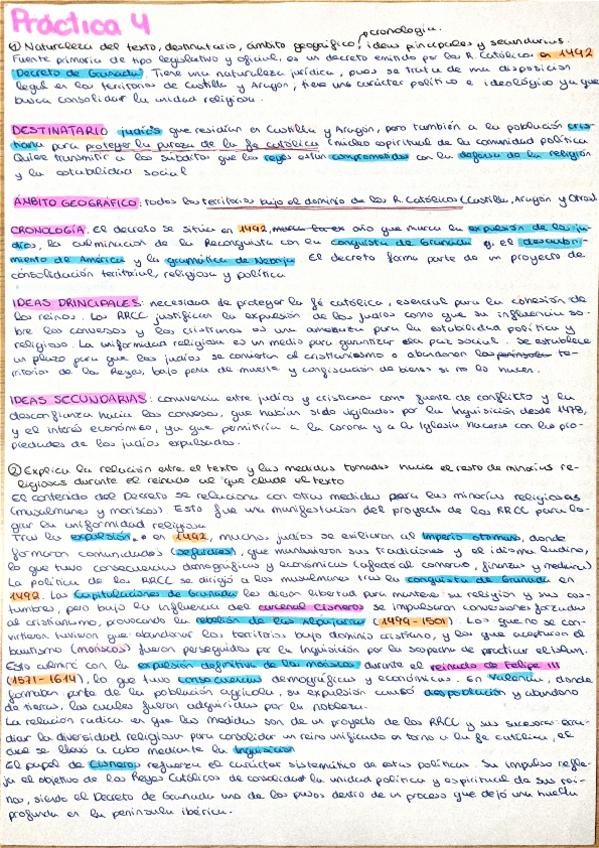 Práctica 4
① Naturaleza del texto, destinatario, ámbito geográfico, cronología, ideas principales y secundarias.
Fuente primaria de tipo legislativo y oficial, es un decreto emitido por los R. Católicos en 1492
(Decreto de Granada). Tiene una naturaleza jurídica, pues se trata de una disposición
legal en los territorios de Castilla y Aragón, tiene una carácter político e ideológico ya que
busca consolidar la unidad religiosa.
DESTINATARIO: judíos que residían en Castilla y Aragón, pero también a la población cris-
tiana para proteger la pureza de la fe católica (núcleo espiritual de la comunidad política
Quiere transmitir a los súbditos que los reyes están comprometidos con la defensa de la religión
y la estabilidad social
ÁMBITO GEOGRÁFICO: todos los territorios bajo el dominio de los R. Católicos (Castilla, Aragón y Otros)
CRONOLOGÍA: El decreto se sitúa en 1492, año que marca la expulsión de los ju-
díos, la culminación de la Reconquista con la conquista de Granada y el descubri-
miento de América y la gramática de Nebrija. El decreto forma parte de un proyecto de
consolidación territorial, religiosa y política
IDEAS PRINCIPALES: necesidad de proteger la fe católica, esencial para la cohesión de
los reinos. Los RRCC justifican la expulsión de los judíos como que su influencia so-
bre los conversos y los cristianos es una amenaza para la estabilidad política y
religiosa. La uniformidad religiosa es un medio para garantizar esa paz social. Se establece
un plazo para que los judíos se conviertan al cristianismo o abandonen los te-
rritorios de los Reyes, bajo pena de muerte y confiscación de bienes si no lo hacen.
IDEAS SECUNDARIAS: convivencia entre judíos y cristianos como fuente de conflicto y la
desconfianza hacia los conversos, que habían sido vigilados por la Inquisición desde 1478,
y el interés económico, ya que permitiría a la Corona y a la Iglesia hacerse con las pro-
piedades de los judíos expulsados.
② Explica la relación entre el texto y las medidas tomadas hacia el resto de minorías re-
ligiosas durante el reinado al que alude el texto
El contenido del Decreto se relaciona con otras medidas para las minorías religiosas
(musulmanes y moriscos). Esto fue una manifestación del proyecto de los RRCC para lo-
grar la uniformidad religiosa
Tras la expulsión en 1492, muchos judíos se exiliaron al Imperio otomano, donde
formaron comunidades (sefardíes), que mantuvieron sus tradiciones y el idioma ladino,
lo que tuvo consecuencias demográficas y económicas (afectó al comercio, finanzas y medicina)
La política de los RRCC se dirigió a los musulmanes tras la conquista de Granada en
1492. Las Capitulaciones de Granada les dieron libertad para mantener su religión y sus cos-
tumbres, pero bajo la influencia del cardenal Cisneros se impulsaron conversiones forzadas
al cristianismo, provocando la rebelión de las Alpujarras (1499-1501). Los que no se con-
virtieron tuvieron que abandonar los territorios bajo dominio cristiano, y los que aceptaron el
bautismo (moriscos) fueron perseguidos por la Inquisición por la sospecha de practicar el islam.
Esto culminó con la expulsión definitiva de los moriscos durante el reinado de Felipe III
(1571-1614), lo que tuvo consecuencias demográficas y económicas. En Valencia, donde
formaban parte de la población agrícola, su expulsión causó despoblación y abandono
de tierras, las cuales fueron adquiridas por la nobleza.
La relación radica en que las medidas son de un proyecto de los RRCC y sus sucesores: erra-
dicar la diversidad religiosa para consolidar un reino unificado en torno a la fe católica, el
cual se llevó a cabo mediante la Inquisición
El papel de Cisneros refuerza el carácter sistemático de estas políticas. Su impulso refle-
ja el objetivo de los Reyes Católicos de consolidar la unidad política y espiritual de sus rei-
nos, siendo el Decreto de Granada uno de los pasos dentro de un proceso que dejó una huella
profunda en la península ibérica.